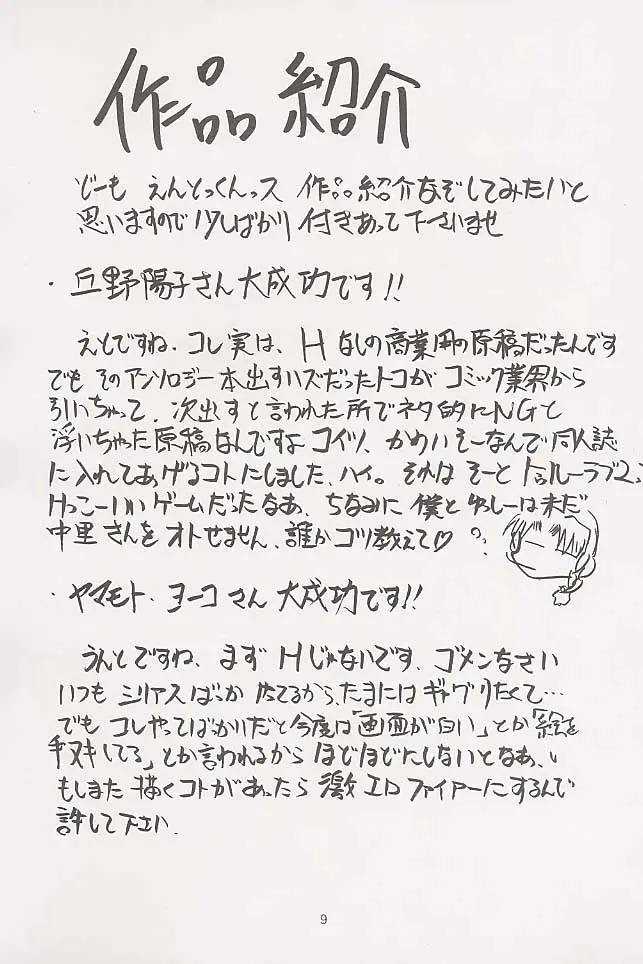 作品紹介
どーも えんとっくんっス 作品紹介なぞしてみたいと
思いますので 少しばかり 付きあって下さいませ
・丘野陽子さん大成功です!!
えとですね、コレ実は、Hなしの商業用の原稿だったんです
でも そのアンソロジー本出すハズだったトコが コミック業界から
引いちゃって、次出すと言われた所でネタ的にNGと
浮いちゃった原稿なんですよ コイツ、かわいそーなんで同人誌
に入れてあげるコトにしました、ハイ。それは そーと トゥルーラブ2、
けっこーいいゲームだったなあ、ちなみに 僕と ゆしーは未だ
中里さんを オトせません、誰か コツ教えて♡
・ヤマモト・ヨーコさん 大成功です!!
うんとですね、まず Hじゃないです、ゴメンなさい
いつも シリアスばっか だてるから、たまにはギャグりたくて…
でも コレやってばっかいだと今度は「画面が白い」とか「絵を
手ヌキしてる」とか言われるから ほどほどにしないとなあ、い
もしまた 描くコトがあったら 激エロファイアーにするんで
許して下さい.
9